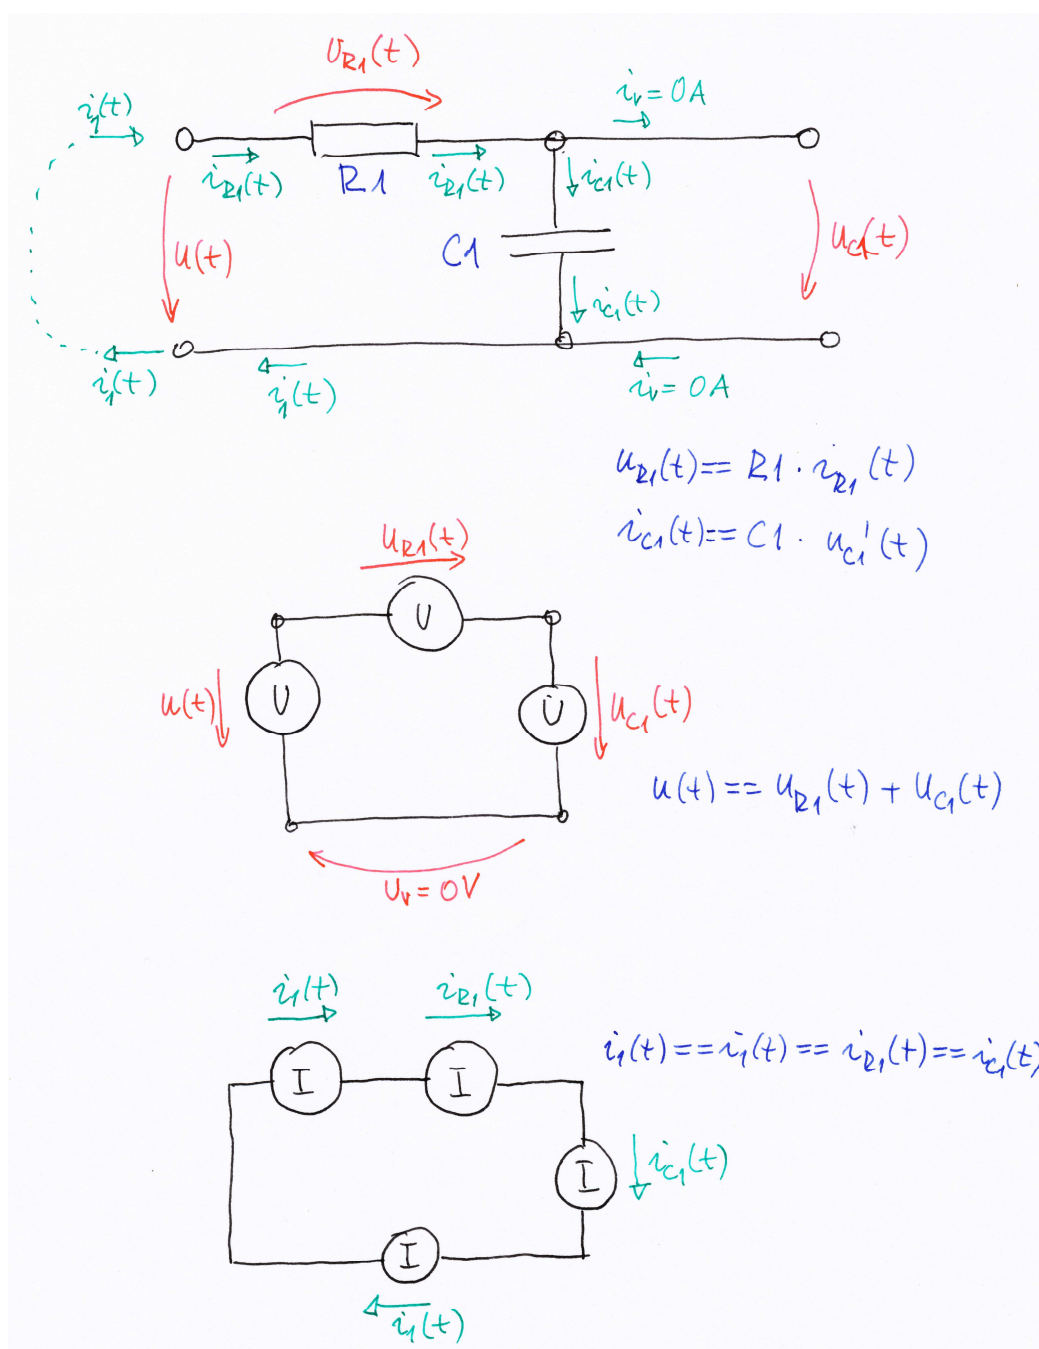 u_R1(t)
i_1(t)
i_v = 0A
i_R1(t)
R1
i_R1(t)
i_C1(t)
u(t)
C1
u_C1(t)
i_C1(t)
i_1(t)
i_1(t)
i_v = 0A
u_R1(t) == R1 · i_R1(t)
i_C1(t) == C1 · u_C1'(t)
u_R1(t)
U
u(t)
U
U
u_C1(t)
u(t) == u_R1(t) + u_C1(t)
U_v = 0V
i_1(t)
i_R1(t)
I
I
i_1(t) == i_1(t) == i_R1(t) == i_C1(t)
I
i_C1(t)
I
i_1(t)